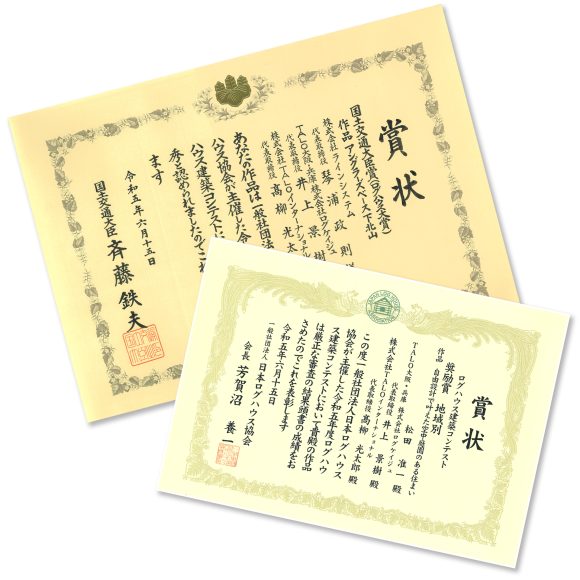 賞状
国土交通大臣賞(ログハウス大賞)
作品 アングラーズベース下北山
株式会社ラインシステム
代表取締役 琴浦 政則
TALO大阪・兵庫 株式会社ログケイジュ
代表取締役 井上 景樹
株式会社TALOインターナショナル
代表取締役 髙柳 光太
あなたの作品は一般社団法
ハウス協会が主催した令
ハウス建築コンテスト
秀と認められましたのでこれ
ます
令和五年六月十五日
国土交通大臣 斉藤 鉄夫
賞状
ログハウス建築コンテスト
奨励賞 地域別
作品 自由設計で叶えた空中庭園のある住まい
松田 准一 殿
TALO大阪・兵庫 株式会社ログケイジュ
代表取締役 井上 景樹 殿
株式会社TALOインターナショナル
代表取締役 髙柳 光太郎 殿
この度一般社団法人日本ログハウス
協会が主催した令和五年度ログハウ
ス建築コンテストにおいて貴殿の作品
は厳正な審査の結果頭書の成績をお
さめたのでこれを表彰します
令和五年六月十五日
一般社団法人 日本ログハウス協会
会長 芳賀沼 養一